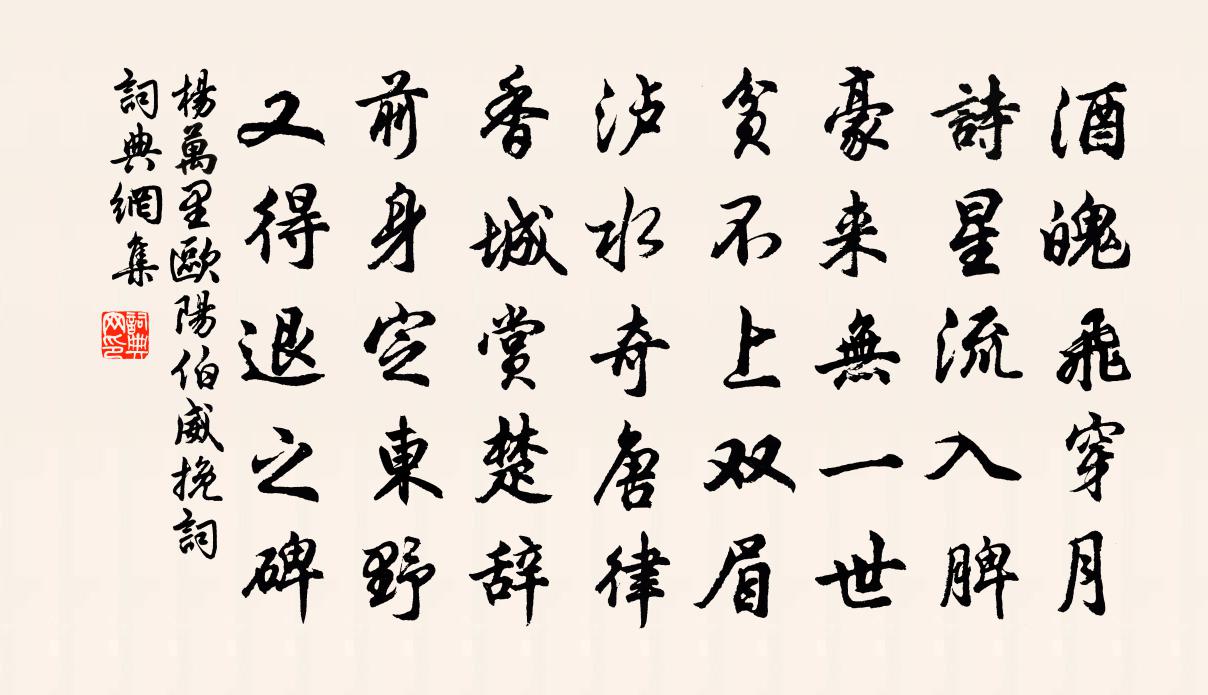 酒魄飛穿月
詩星流入脾
豪来無一世
貧不上双眉
泸水奇唐律
香城賞楚辞
前身定東野
又得退之碑
楊萬里歐陽伯威挽詞
詞典網集
詞典网印